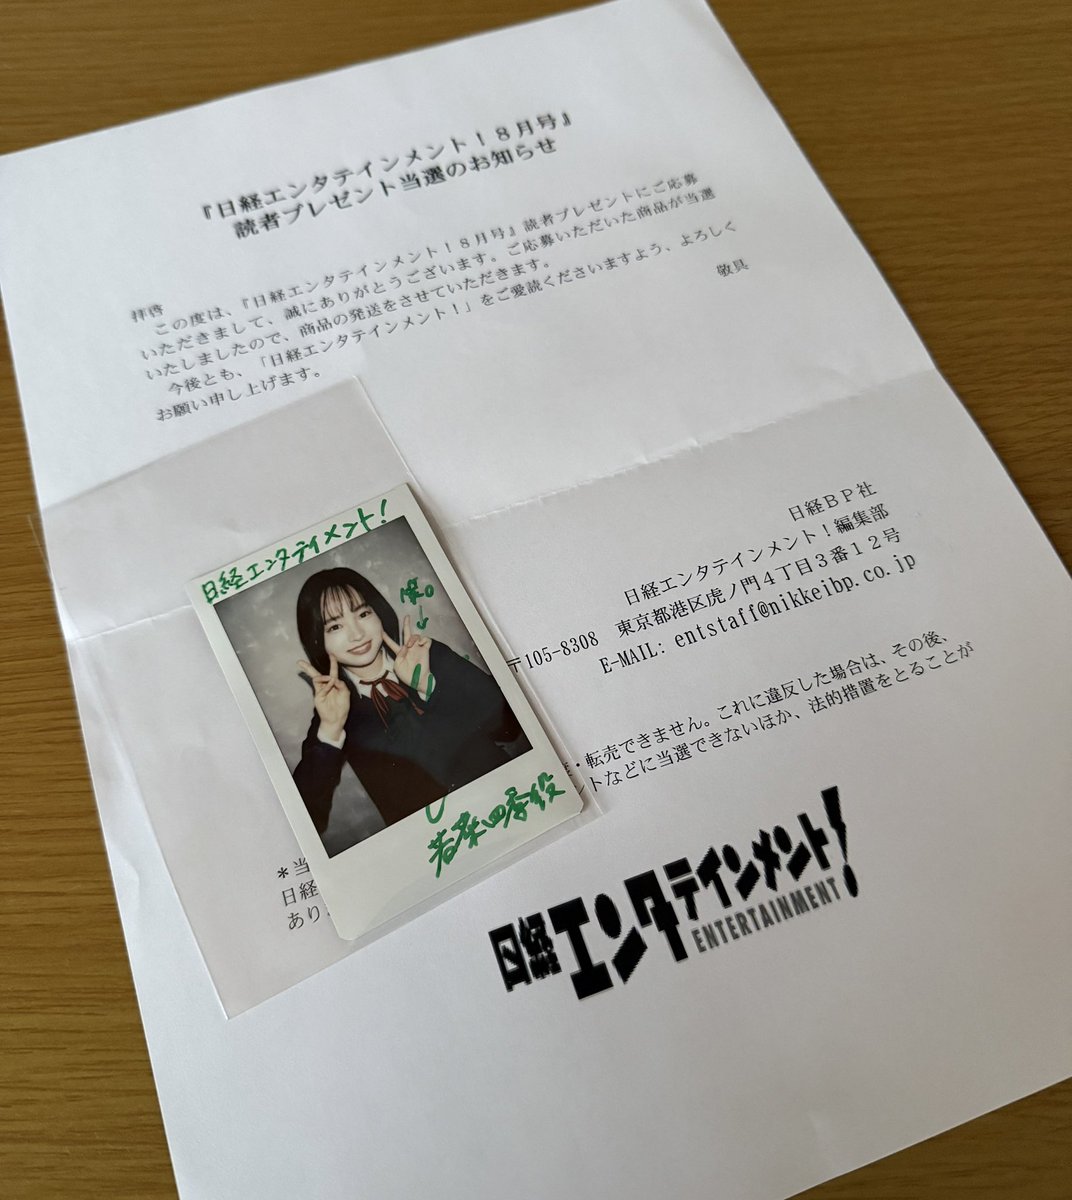 『日経エンタテインメント！８月号』
読者プレゼント当選のお知らせ
拝啓
この度は、『日経エンタテインメント！８月号』読者プレゼントにご応募
いただきまして、誠にありがとうございます。ご応募いただいた商品が当選
いたしましたので、商品の発送をさせていただきます。
今後とも、「日経エンタテインメント！」をご愛読くださいますよう、よろしく
お願い申し上げます。
敬具
日経ＢＰ社
日経エンタテインメント！編集部
〒105-8308 東京都港区虎ノ門４丁目３番１２号
E-MAIL: entstaff@nikkeibp.co.jp
日経エンタテイメント!
若菜四季役
＊当
・転売できません。これに違反した場合は、その後、
日経
トなどに当選できないほか、法的措置をとることが
あり
日経エンタテインメント!
ENTERTAINMENT